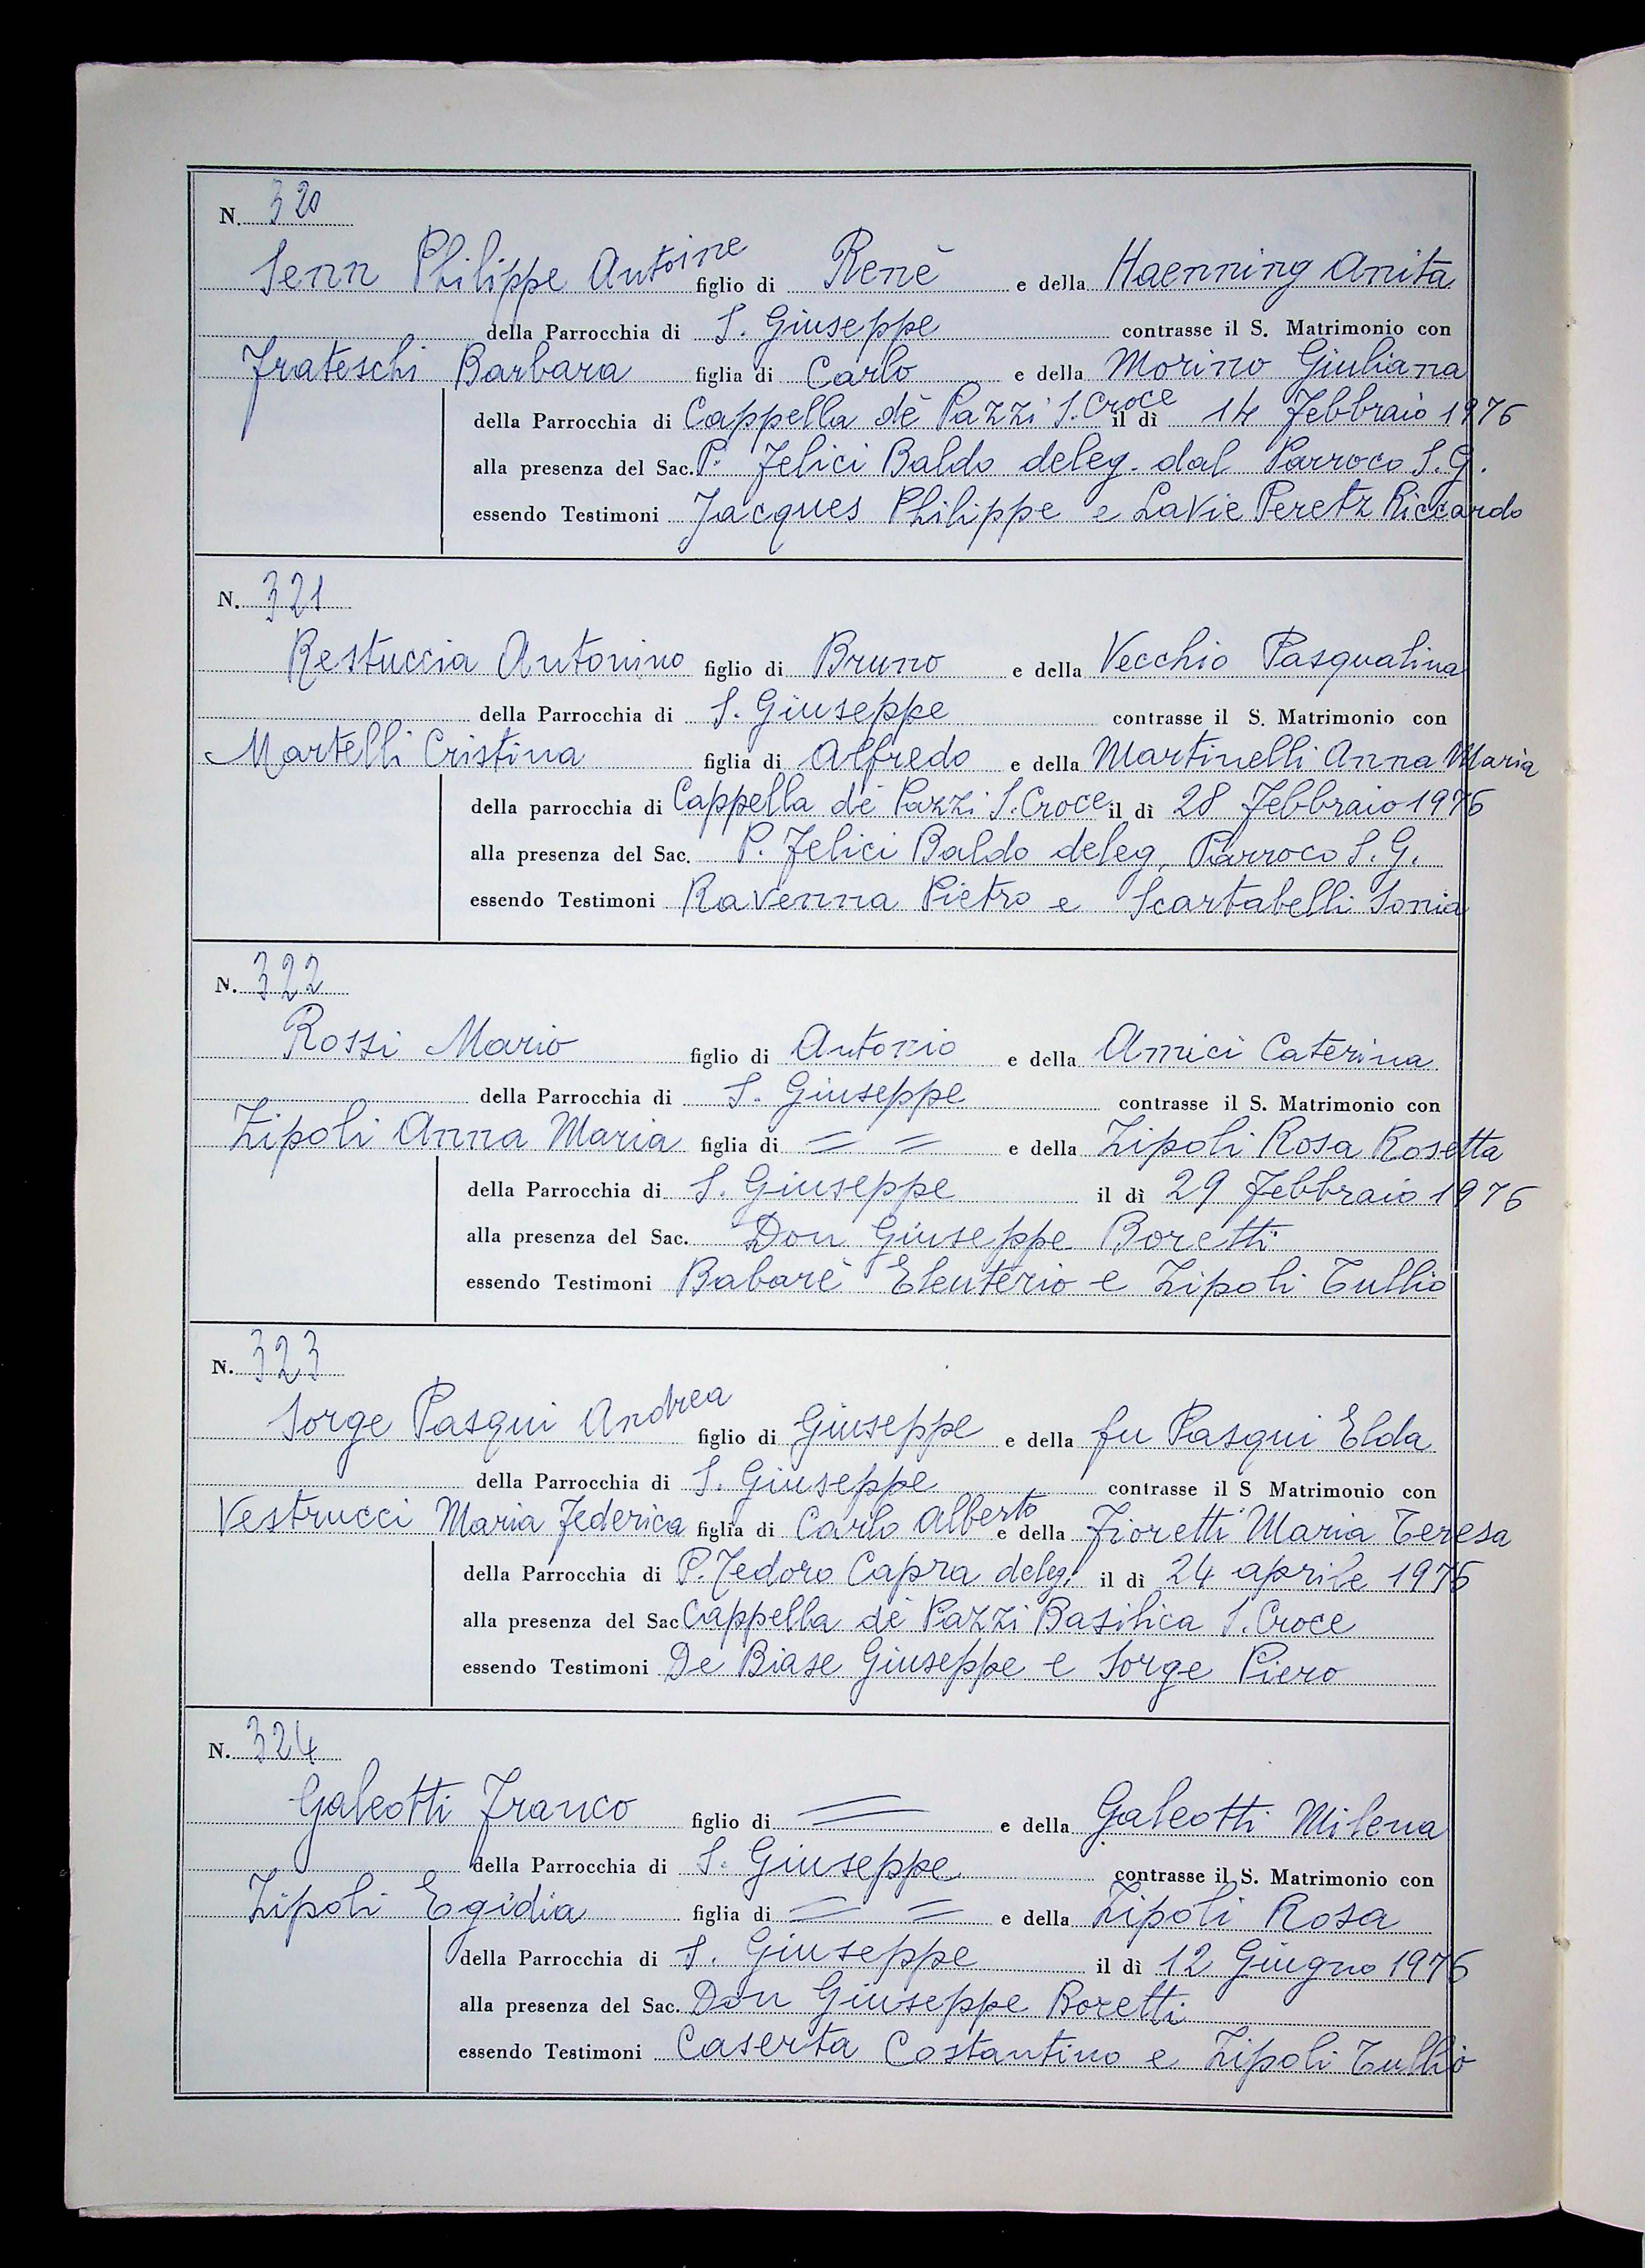 N. 320
Senn Philippe Antoine figlio di Renè e della Haenning Anita
della Parrocchia di S. Giuseppe contrasse il S. Matrimonio con
Frateschi Barbara figlia di Carlo e della Morino Giuliana
della Parrocchia di Cappella dè Pazzi S. Croce il dì 14 Febbraio 1976
alla presenza del Sac. P. Felici Baldo deleg. dal Parroco S.G.
essendo Testimoni Jacques Philippe e LaVie Peretz Riccardo
N. 321
Restuccia Antonino figlio di Bruno e della Vecchio Pasqualina
della Parrocchia di S. Giuseppe contrasse il S. Matrimonio con
Martelli Cristina figlia di Alfredo e della Martinelli Anna Maria
della parrocchia di Cappella dè Pazzi S. Croce il dì 28 Febbraio 1976
alla presenza del Sac. P. Felici Baldo deleg. Parroco S.G.
essendo Testimoni Ravenna Pietro e Scartabelli Sonia
N. 322
Rossi Mario figlio di Antonio e della Amici Caterina
della Parrocchia di S. Giuseppe contrasse il S. Matrimonio con
Zipoli Anna Maria figlia di = = e della Zipoli Rosa Rosetta
della Parrocchia di S. Giuseppe il dì 29 Febbraio 1976
alla presenza del Sac. Don Giuseppe Boretti
essendo Testimoni Babarè Eleuterio e Zipoli Tullio
N. 323
Sorge Pasqui Andrea figlio di Giuseppe e della fu Pasqui Elda
della Parrocchia di S. Giuseppe contrasse il S Matrimonio con
Vestrucci Maria Federica figlia di Carlo Alberto e della Fioretti Maria Teresa
della Parrocchia di P. Tedoro Capra deleg. il dì 24 aprile 1976
alla presenza del Sac Cappella dè Pazzi Basilica S. Croce
essendo Testimoni De Biase Giuseppe e Sorge Piero
N. 324
Galeotti Franco figlio di = e della Galeotti Milena
della Parrocchia di S. Giuseppe contrasse il S. Matrimonio con
Zipoli Egidia figlia di = = e della Zipoli Rosa
della Parrocchia di S. Giuseppe il dì 12 Giugno 1976
alla presenza del Sac. Don Giuseppe Boretti
essendo Testimoni Caserta Costantino e Zipoli Tullio